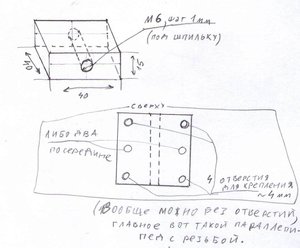 М6, шаг 1мм
(под шпильку)
40
40
15
сверху
либо два
посередине
4 отверстия
для крепления
~4мм
(Вообще можно без отверстий,
главное вот такой параллепи-
пед с резьбой.